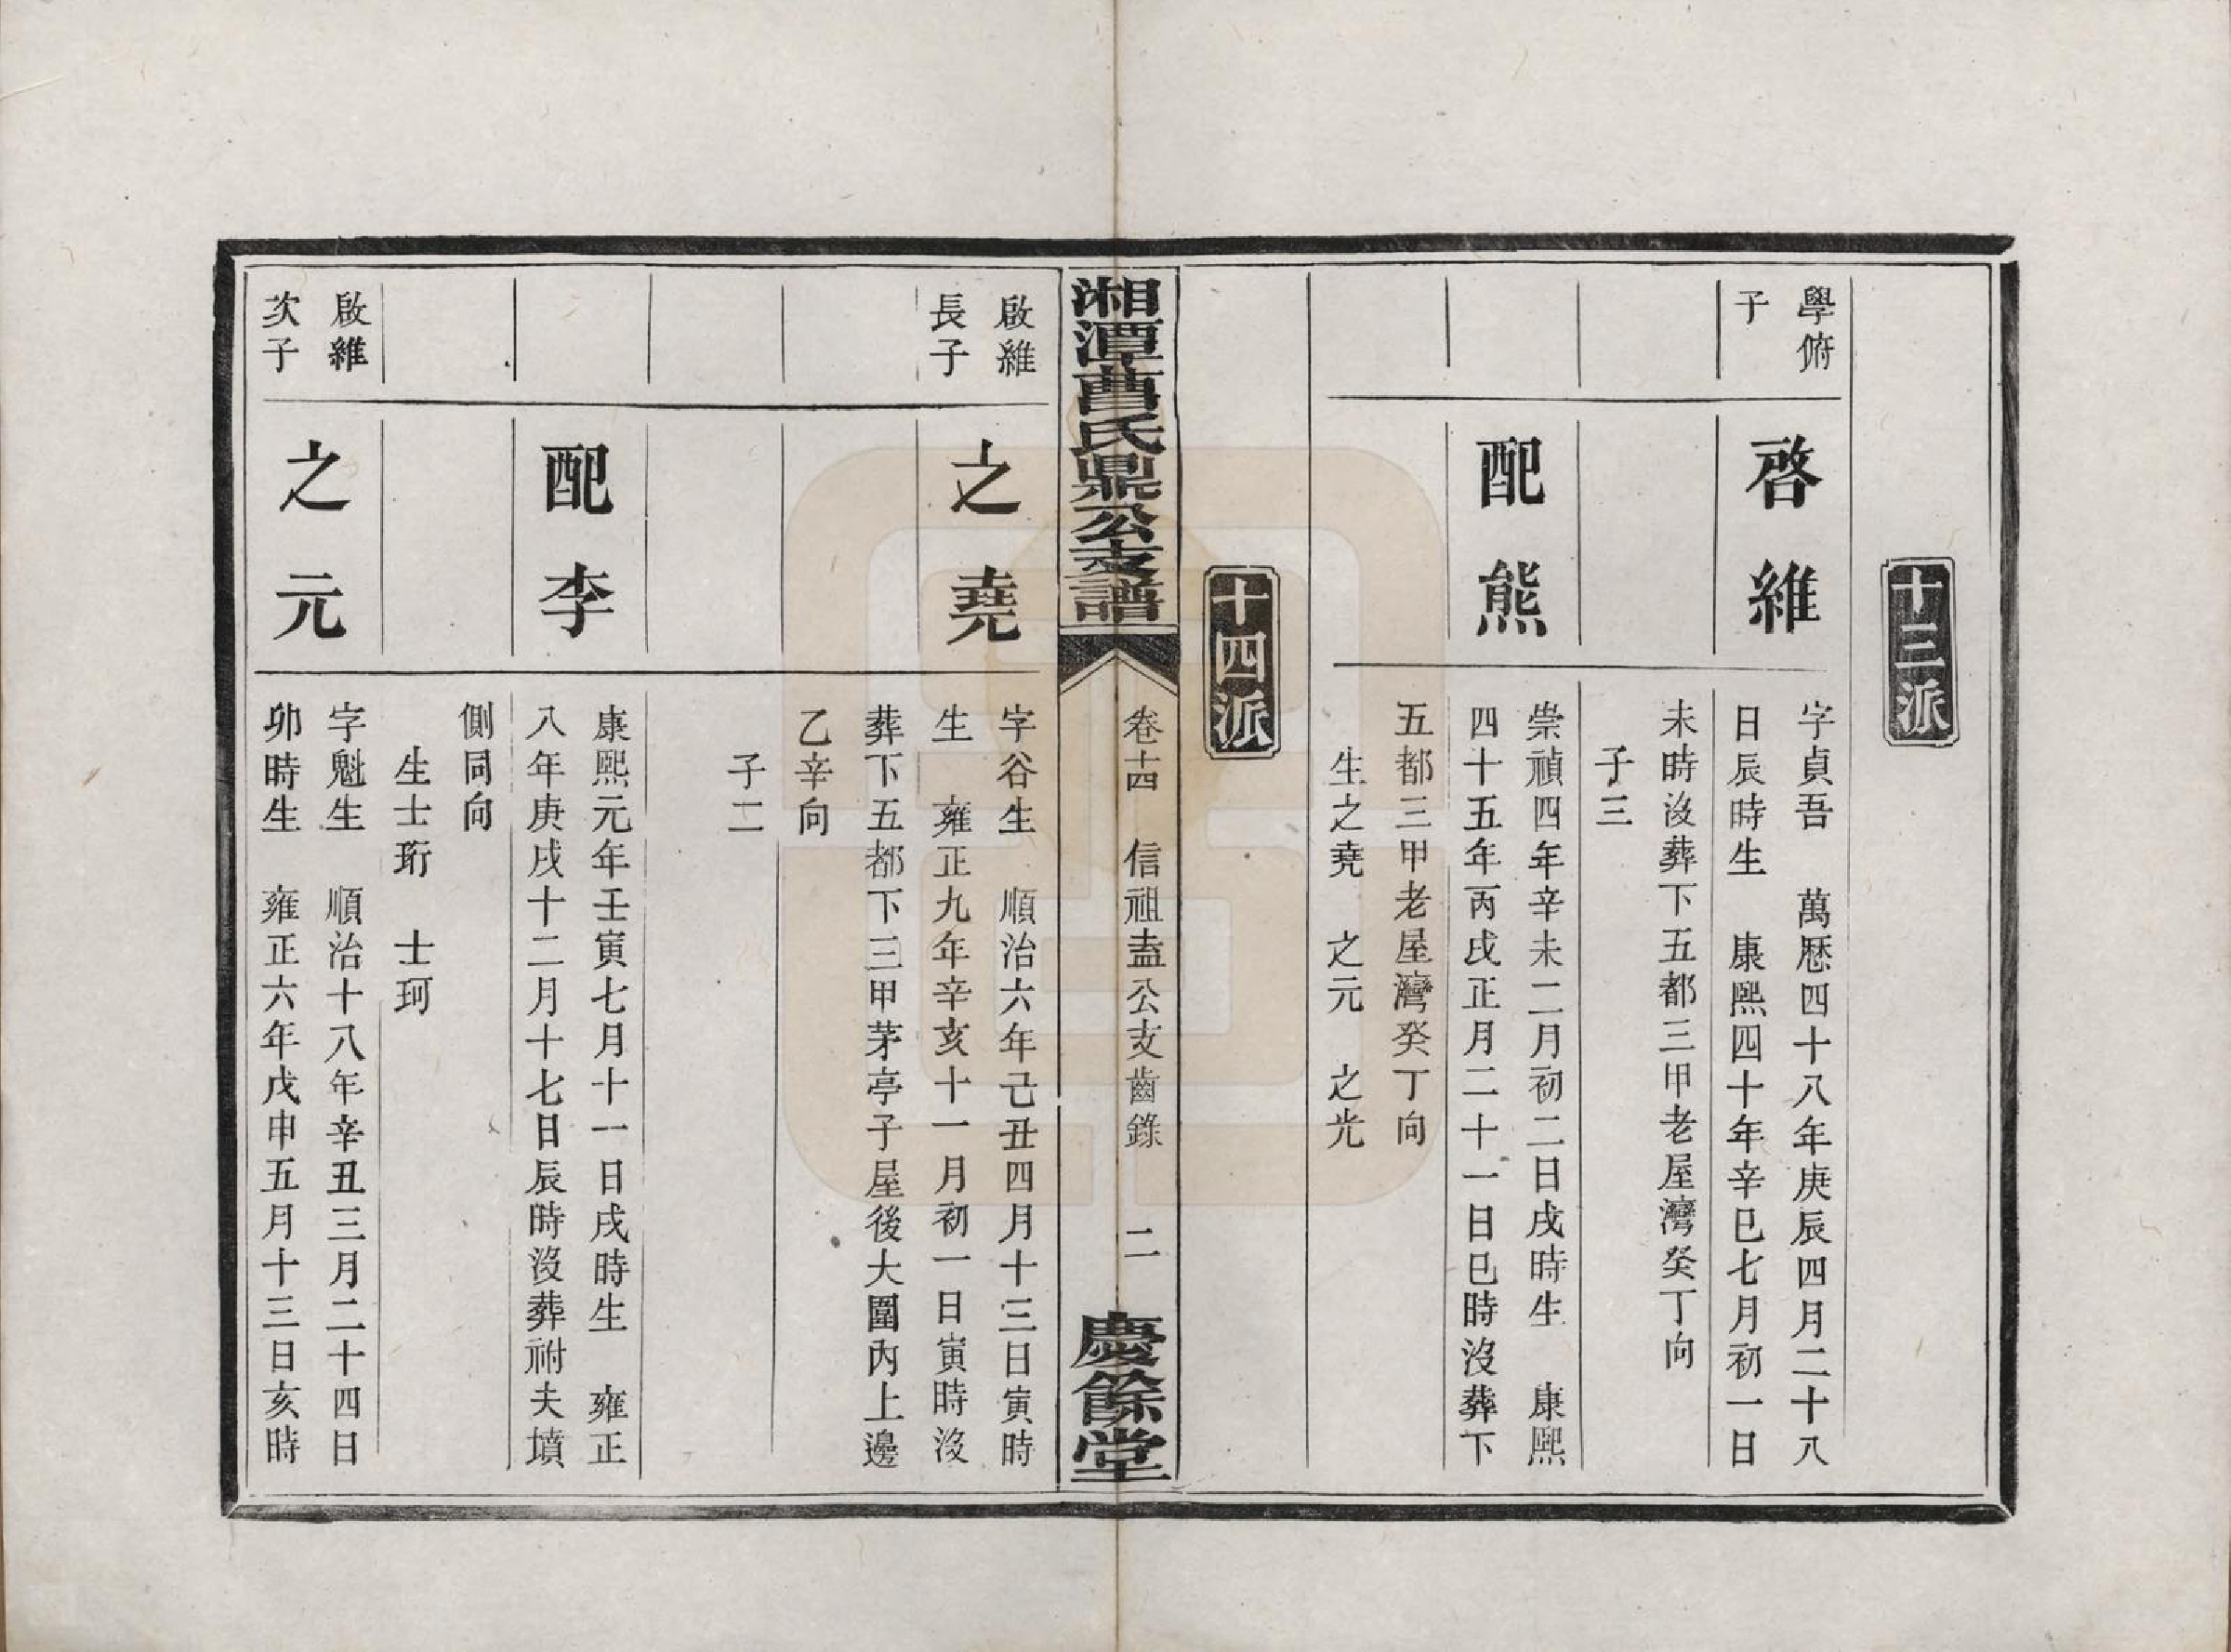 十三派
學俯
子
啓維
字貞吾　萬歷四十八年庚辰四月二十八
日辰時生　康熙四十年辛巳七月初一日
未時沒葬下五都三甲老屋灣癸丁向
子三
配熊
崇禎四年辛未二月初二日戌時生　康熙
四十五年丙戌正月二十一日巳時沒葬下
五都三甲老屋灣癸丁向
生之堯　之元　之光
十四派
湘潭曹氏鼎公支譜
卷十四　信祖盍公支齒錄　二
慶餘堂
啟維
長子
之堯
字谷生　順治六年己丑四月十三日寅時
生　雍正九年辛亥十一月初一日寅時沒
葬下五都下三甲茅亭子屋後大圍內上邊
乙辛向
子二
配李
康熙元年壬寅七月十一日戌時生　雍正
八年庚戌十二月十七日辰時沒葬祔夫墳
側同向
生士珩　士珂
啟維
次子
之元
字魁生　順治十八年辛丑三月二十四日
卯時生　雍正六年戊申五月十三日亥時